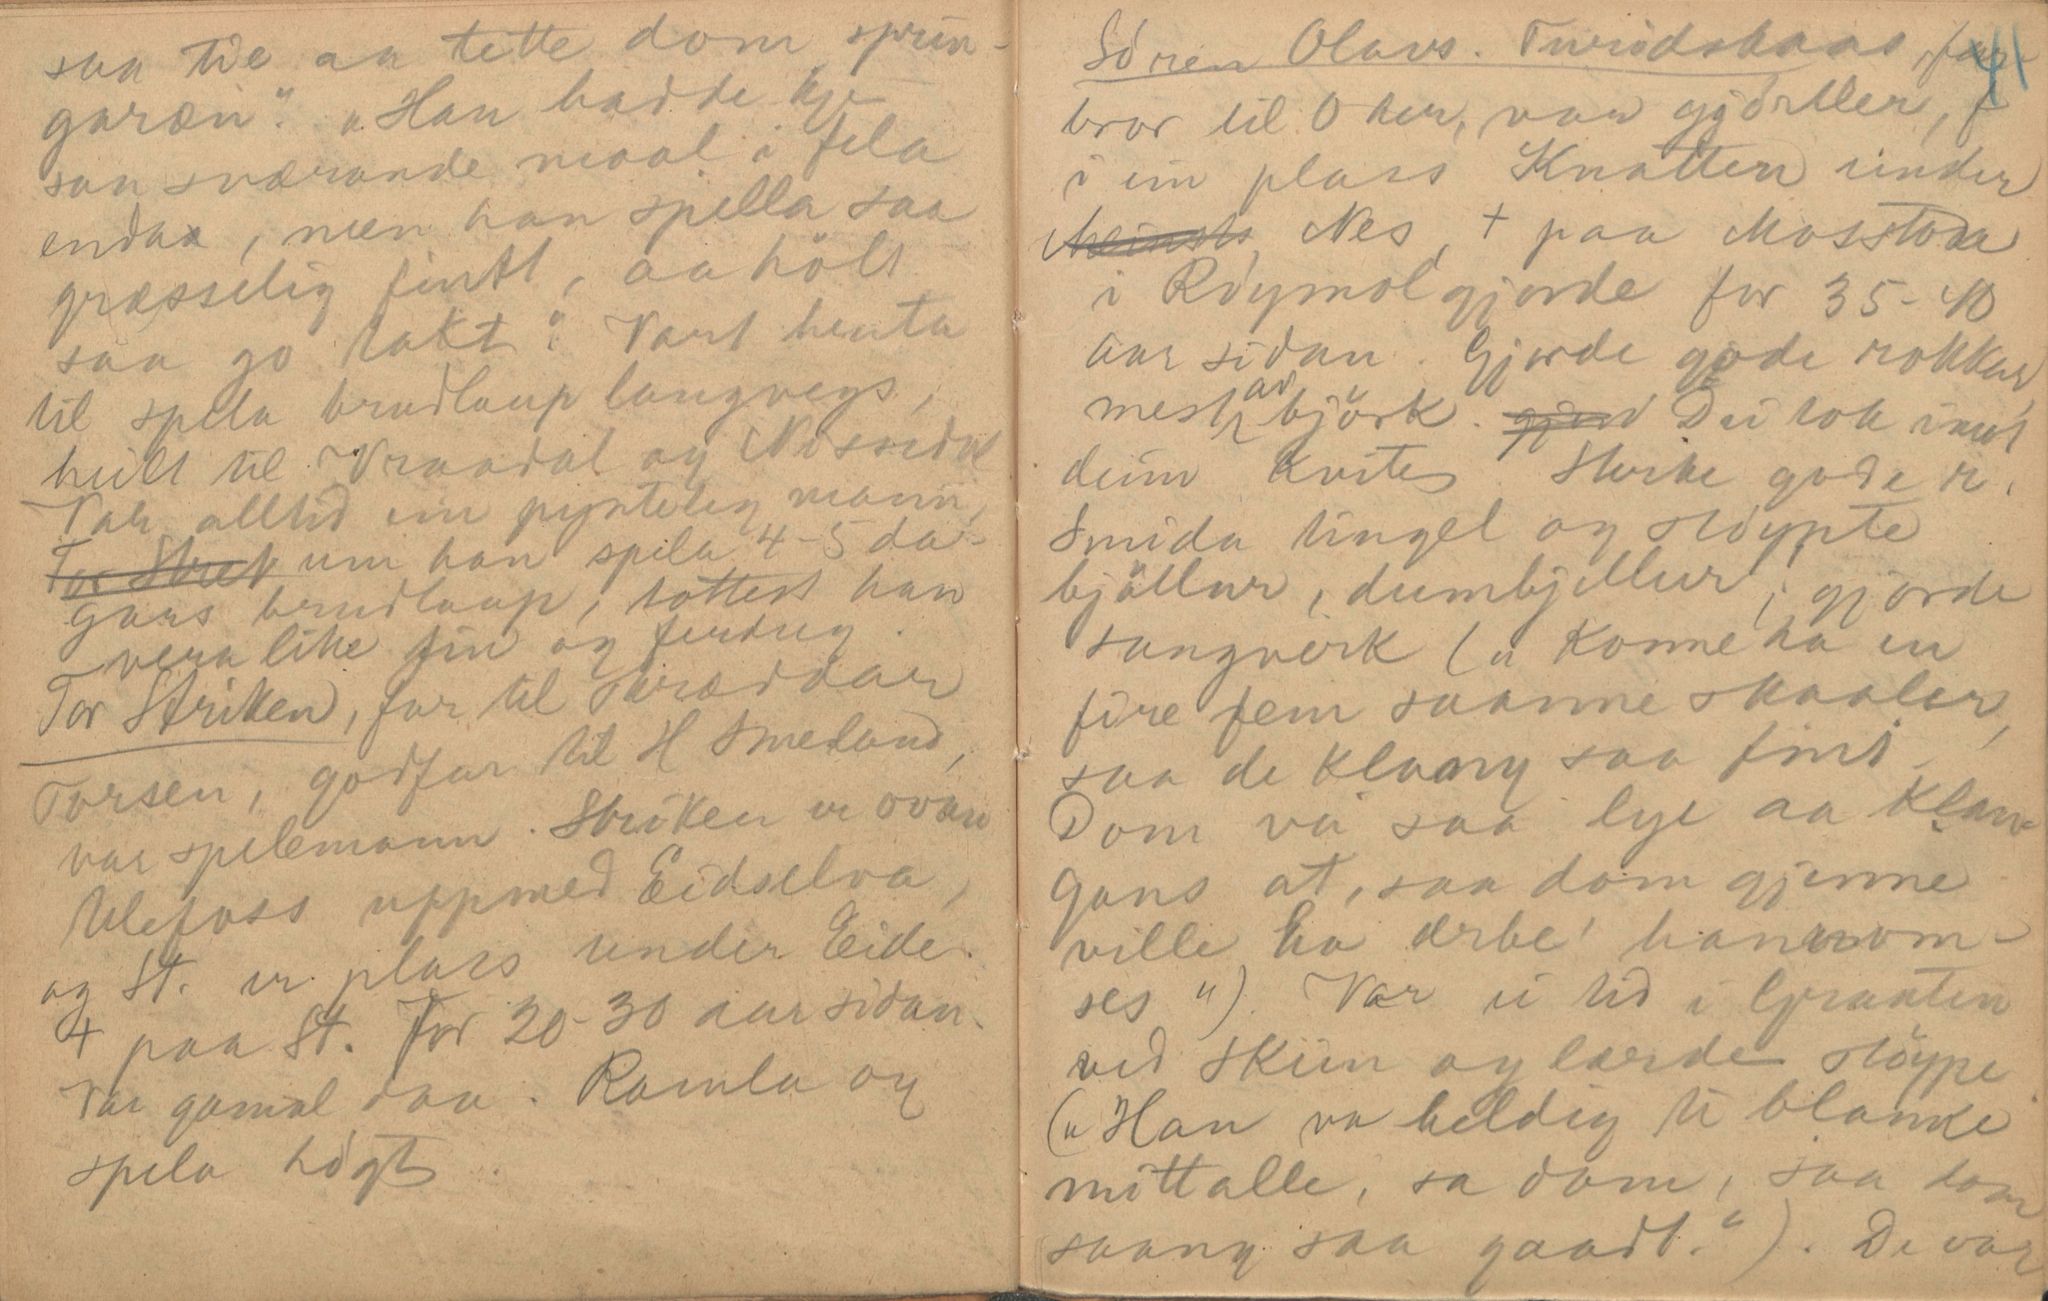 saa tie aa tette dom sprin-
garæn". "Han hadde kje
saa sværande maal i fela
endaa, men han spella saa
græsselig fint, aa hölt
saa go takt". Vart henta
til spela brudlaup langvegs,
heilt til Vraadal og Nissedal
Var alltid ein pynteleg mann,
um han spela 4-5 da-
gars brudlaup, tottest han
vera like fin og ferdug.
Tor Striken, far til skræddar
Torsen, godfar til H Smeland,
var spelemann. Striken er ovan
Ulefoss uppmed Eidselva,
og St. er plass under Eide.
+ paa St. for 20-30 aar sidan.
Var gamal daa. Ramla og
spela högt.
Sören Olavs. Turidshaas, far- 41
bror til O her, var gjörtler, f
i ein plass Knatten under
Nes, + paa Mosstoda
i Röymolgjorde for 35-40
aar sidan. Gjorde gode rokkar
mest av björk. Dei tok imot
deim kvites. Sterke gode r.
Smida tingel og stöypte
bjöllur, dumbjellur, gjorde
sangverk (" Konne ha en
fire fem saanne skaaler,
saa de klaang saa fint.
Dom va saa lye aa klaan-
gans at, saa dom gjenne
ville ha ærbe' hanness om-
ses "). Var ei tid i Graaten
ved Skien og lærde stöype
(" Han va heldig te blanke
mittalle, sa dom, saa dom
saang saa gaadt."). De var